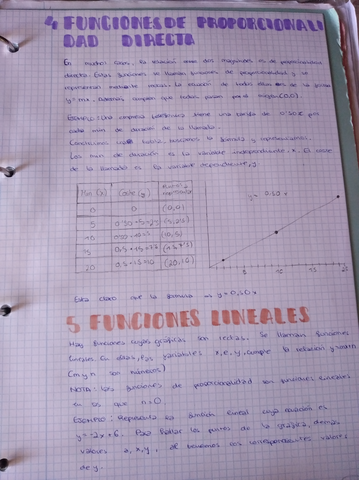 4 FUNCIONES DE PROPORCIONALI
DAD DIRECTA
En muchos casos, la relación entre dos magnitudes es de proporcionalidad
directa. Estas funciones se llaman funciones de proporcionalidad y se
representan mediante rectas. La ecuación de todas ellas es de la forma
y=mx. Además, siempre que todas pasan por el origen (0,0).
Ejemplo: Una empresa telefónica tiene una tarifa de 0'50€ por
cada min de duración de la llamada.
tabla, buscamos la fórmula y representamos.
Los min de duración es la variable independiente x. El coste
de la llamada es la variable dependiente, y.
Min (x) Coste (y)
0 0 (0,0)
5
10 (10,5)
15
20 (20,10)
y= 0,50 x
5 10 15 20
Esta claro que la fórmula es y=0,50x
5 FUNCIONES LINEALES
Hay funciones cuyas gráficas son rectas. Se llaman funciones
lineales. En ellas, las variables x, e, y, cumple la relación y=mx+n
(m y n son números)
NOTA: Las funciones de proporcionalidad son funciones lineales
en las que n=0
EJEMPLO: Representa la función lineal cuya ecuación es
y=-2x+6. Para hallar los puntos de la gráfica, demos
valores a, x, y, obtenemos los correspondientes valores
de y.